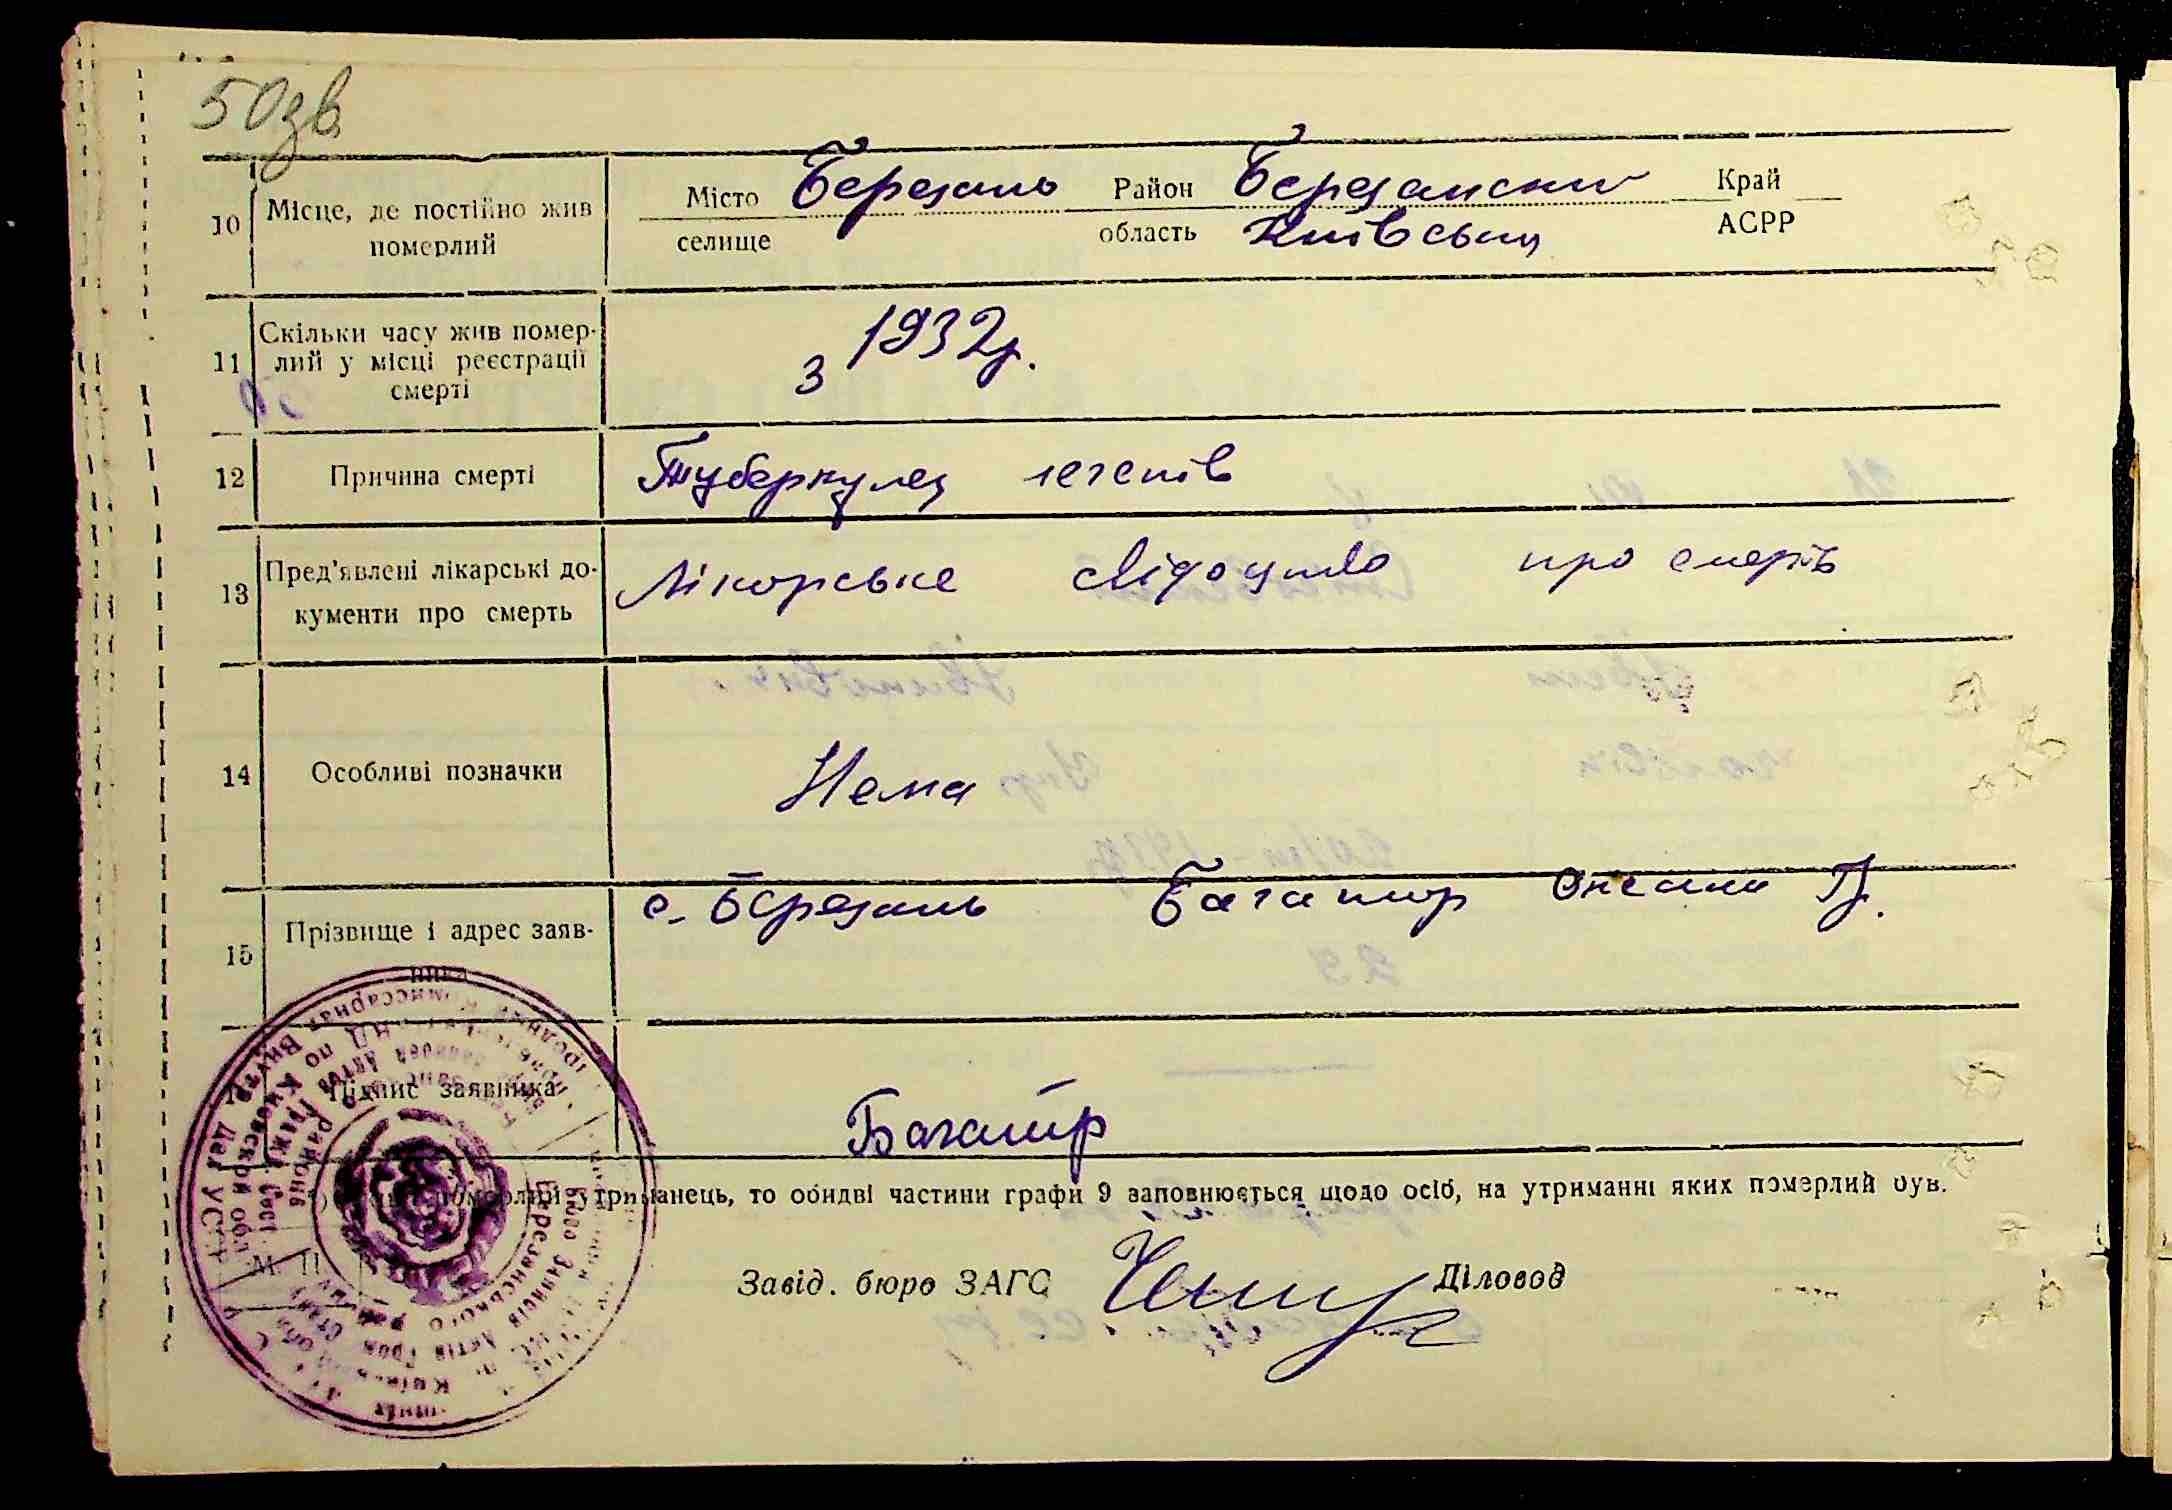 50зв
10 Місце, де постійно жив померлий
Місто Березань Район Березанський Край
селище область Київська АСРР
11 Скільки часу жив помер-
лий у місці реєстрації
смерті
з 1932р.
12 Причина смерті Туберкулез легенів
13 Пред'явлені лікарські до-
кументи про смерть
Лікорське свідоцтво про смерть
14 Особливі позначки Нема
15 Прізвище і адрес заяв-
с. Березань Багатир Оксана Гр.
Підпис заявника Багатир
померлий утриманець, то обидві частини графи 9 заповнюється щодо осіб, на утриманні яких померлий був.
М. П.
Завід. бюро ЗАГС Діловод